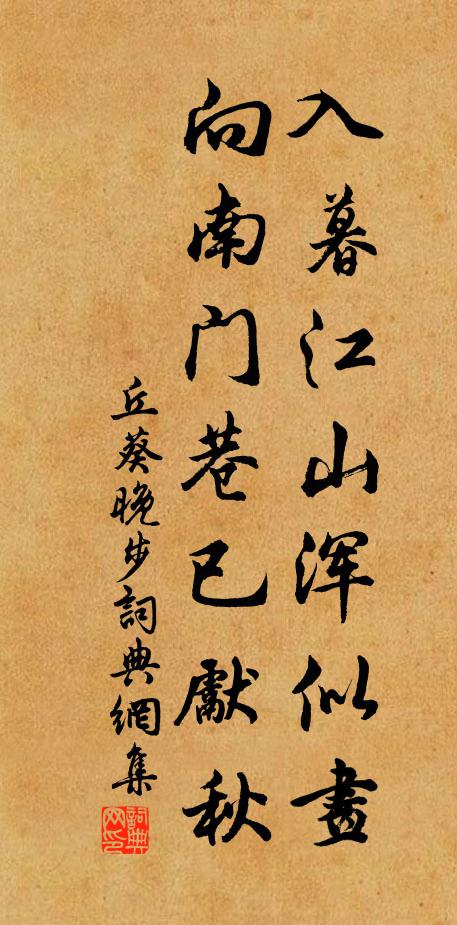 入暮江山浑似畫
向南门巷已獻秋
丘葵晚步詞典網集
詞典网印